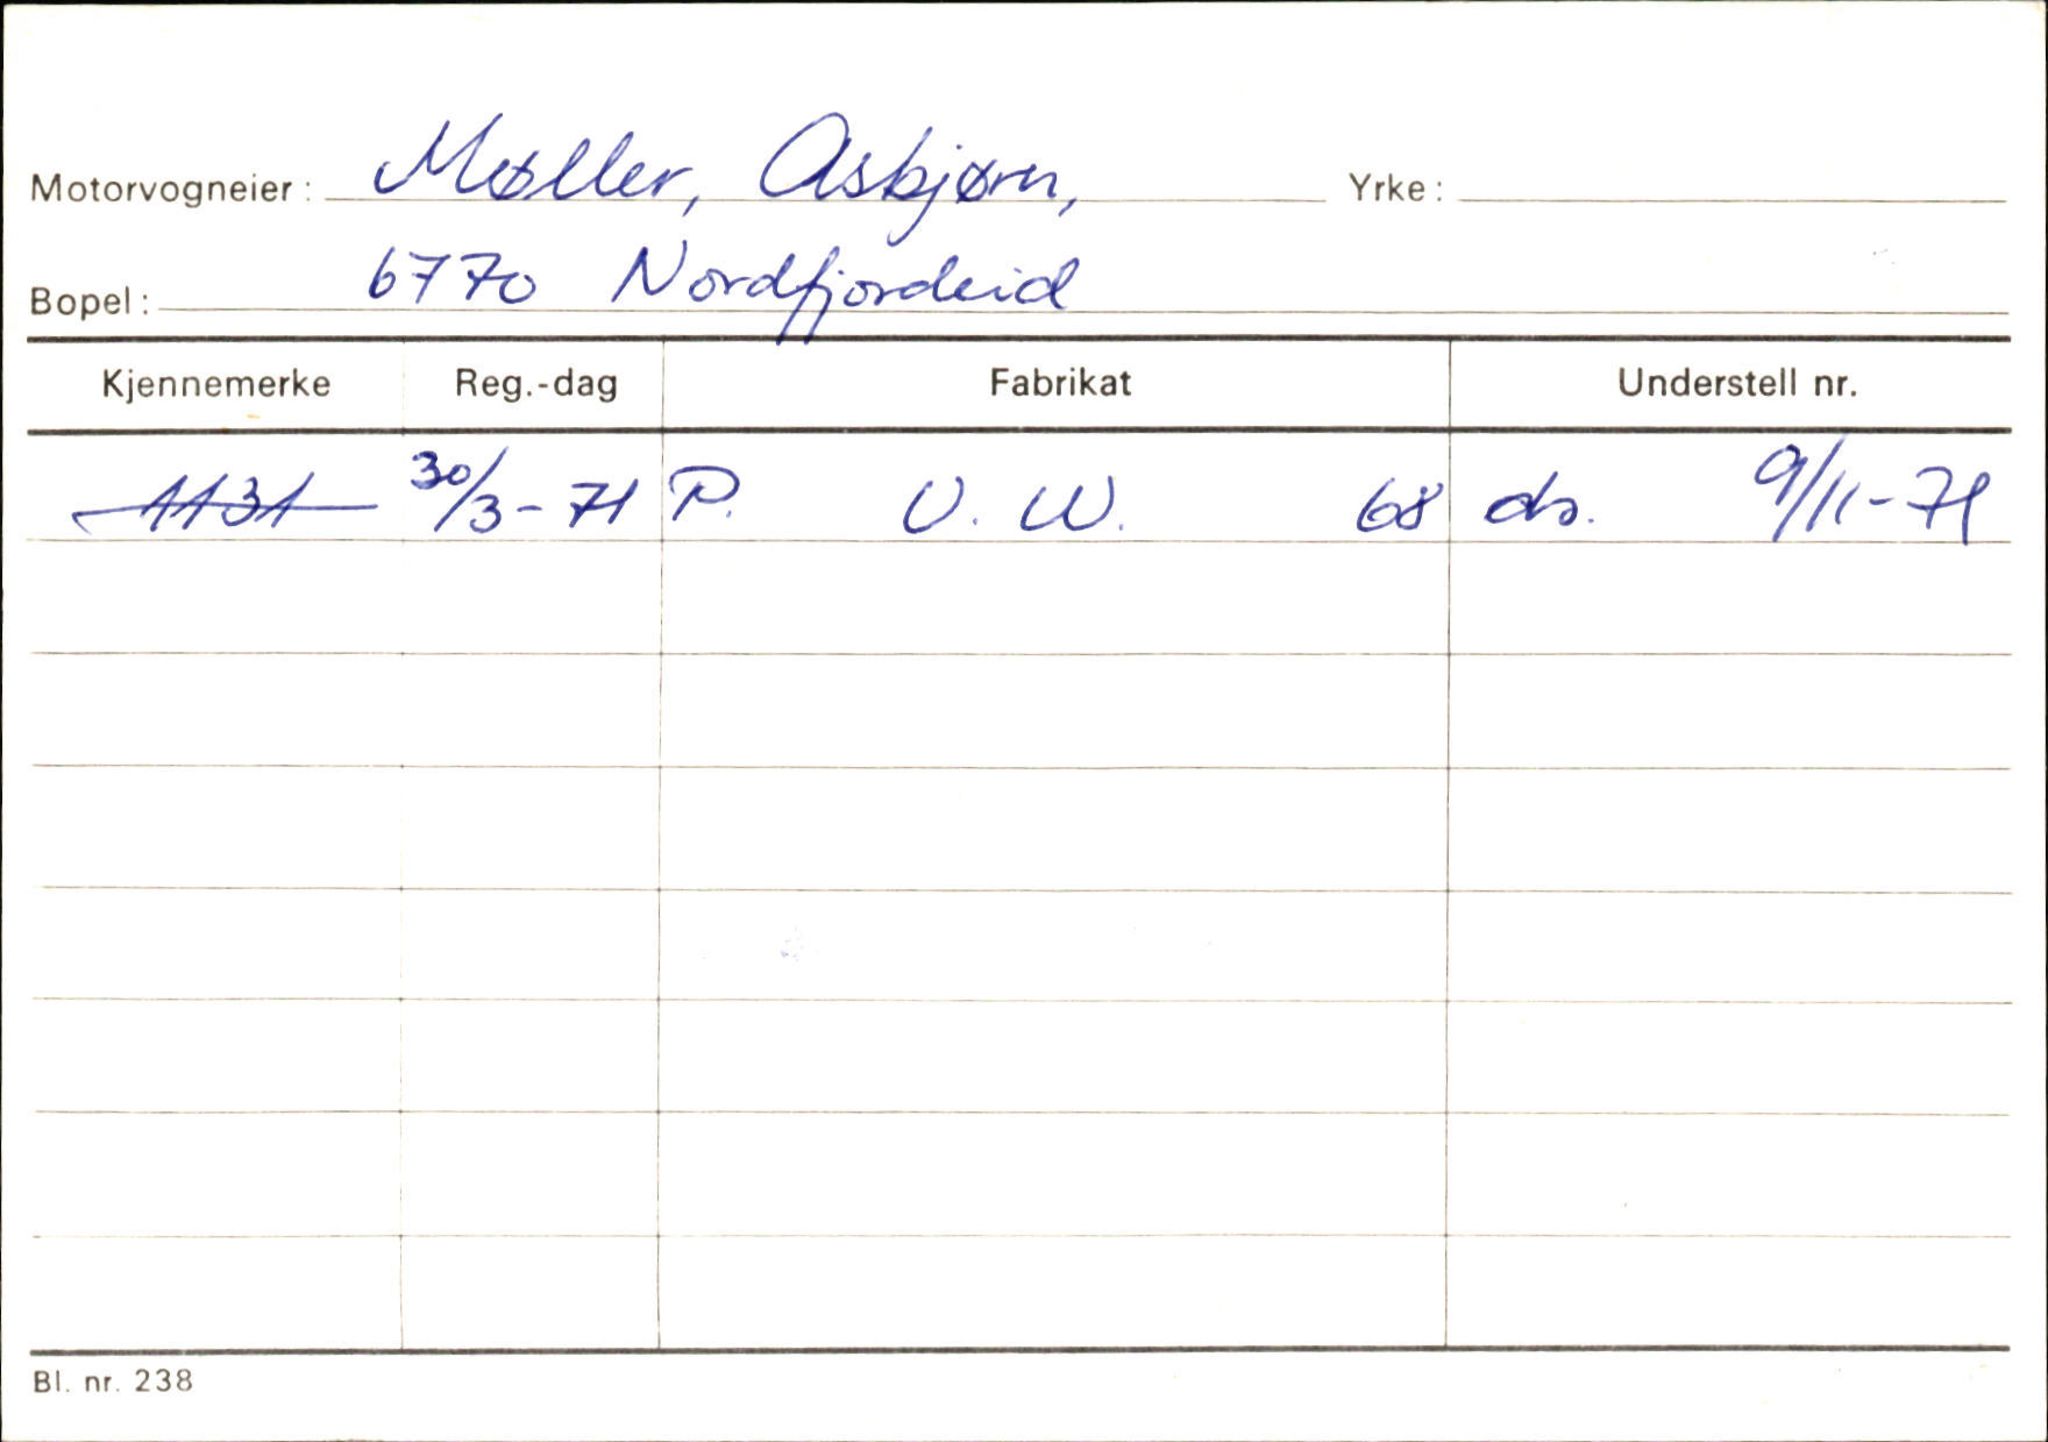 Motorvogneier: Møller, Asbjørn, Yrke:
Bopel: 6770 Nordfjordeid
Kjennemerke Reg.-dag Fabrikat Understell nr.
1131 30/3-71 P. V. W. 68 ds. 9/11-71
Bl. nr. 238